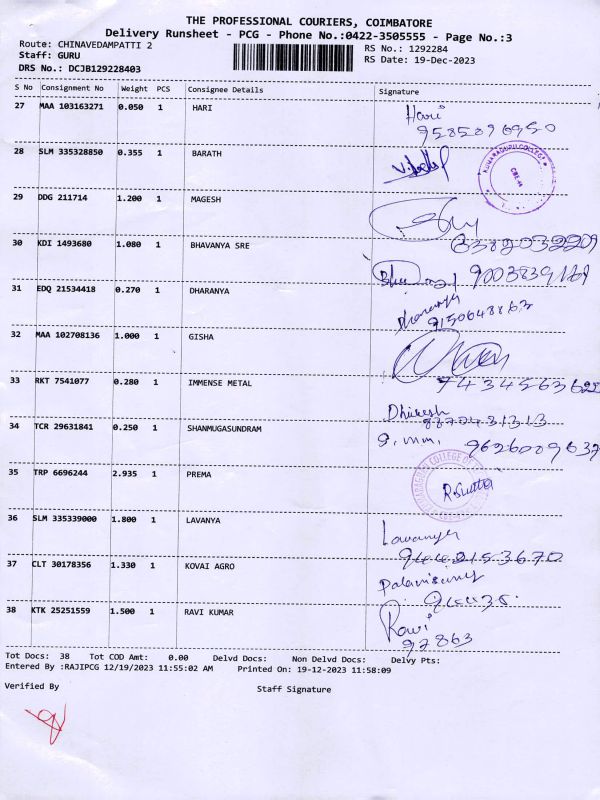 THE PROFESSIONAL COURIERS, COIMBATORE
Delivery Runsheet - PCG - Phone No.:0422-3505555 - Page No.:3
Route: CHINAVEDAMPATTI 2
RS No.: 1292284
Staff: GURU
RS Date: 19-Dec-2023
DRS No.: DCJB129228403
S No Consignment No Weight PCS Consignee Details Signature
27 MAA 103163271 0.050 1 HARI Hari
28 SLM 335328850 0.355 1 BARATH
KUMARAGURU COLLEGE
29 DDG 211714 1.200 1 MAGESH
30 KDI 1493680 1.080 1 BHAVANYA SRE
31 EDQ 21534418 0.270 1 DHARANYA Dharanya
9150648863
32 MAA 102708136 1.000 1 GISHA
33 RKT 7541077 0.280 1 IMMENSE METAL
34 TCR 29631841 0.250 1 SHANMUGASUNDRAM
35 TRP 6696244 2.935 1 PREMA
36 SLM 335339000 1.800 1 LAVANYA Lavanya
37 CLT 30178356 1.330 1 KOVAI AGRO
38 KTK 25251559 1.500 1 RAVI KUMAR Ravi
92863
Tot Docs: 38 Tot COD Amt: 0.00 Delvd Docs: Non Delvd Docs: Delvy Pts:
Entered By :RAJIPCG 12/19/2023 11:55:02 AM Printed On: 19-12-2023 11:58:09
Verified By Staff Signature